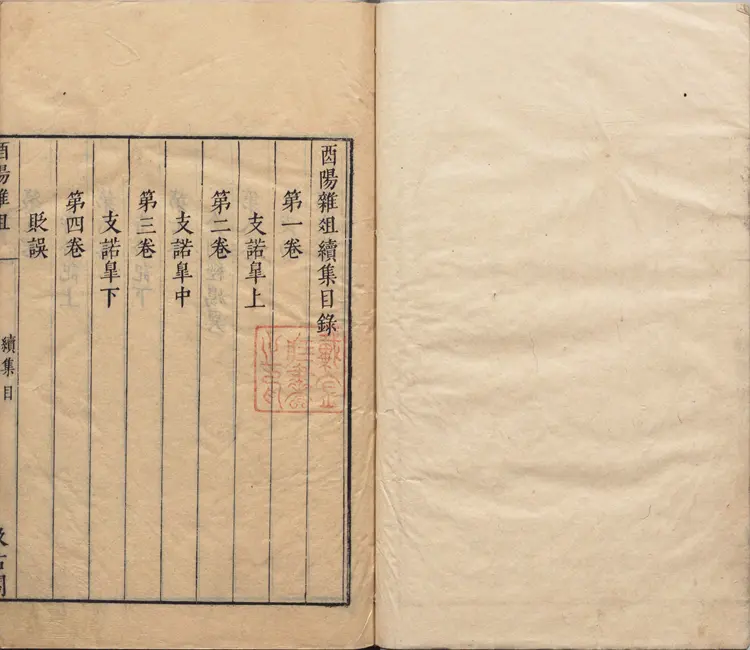 酉陽雜俎續集目錄
第一卷
支諾臯上
第二卷
支諾臯中
第三卷
支諾臯下
第四卷
貶誤
酉陽雜俎
續集目
汲古閣